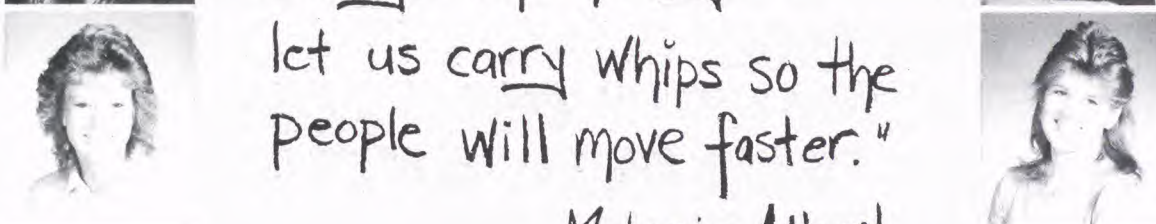 let us carry whips so the
people will move faster."